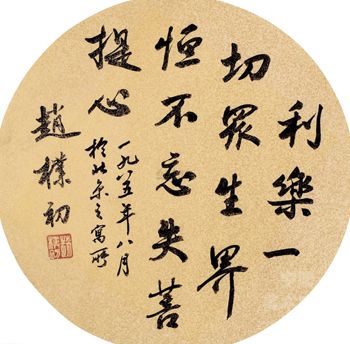 利樂一
切眾生界
恒不忘失菩
提心
一九八五年八月
於北京之寓所
趙樸初